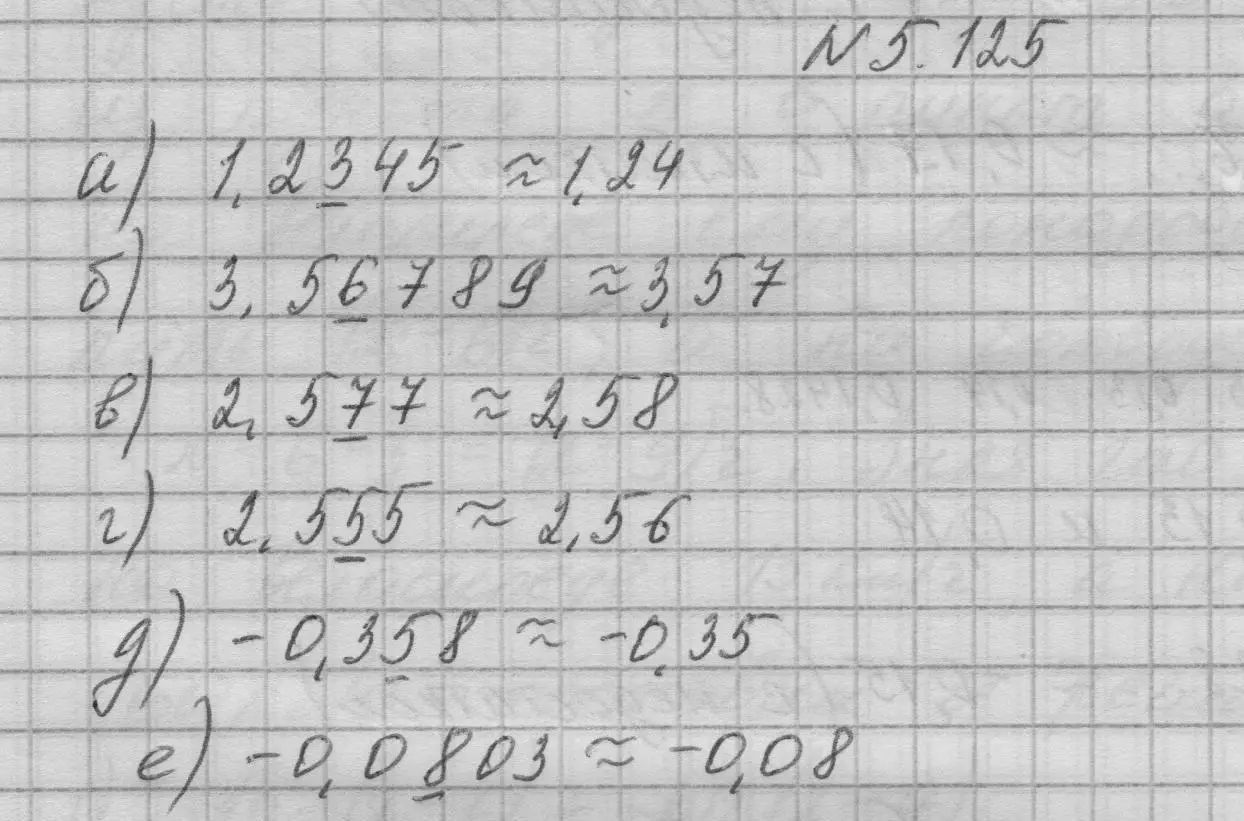 N 5.125
а) 1,2345 ≈ 1,24
б) 3,56789 ≈ 3,57
в) 2,577 ≈ 2,58
г) 2,555 ≈ 2,56
д) -0,358 ≈ -0,35
е) -0,0803 ≈ -0,08